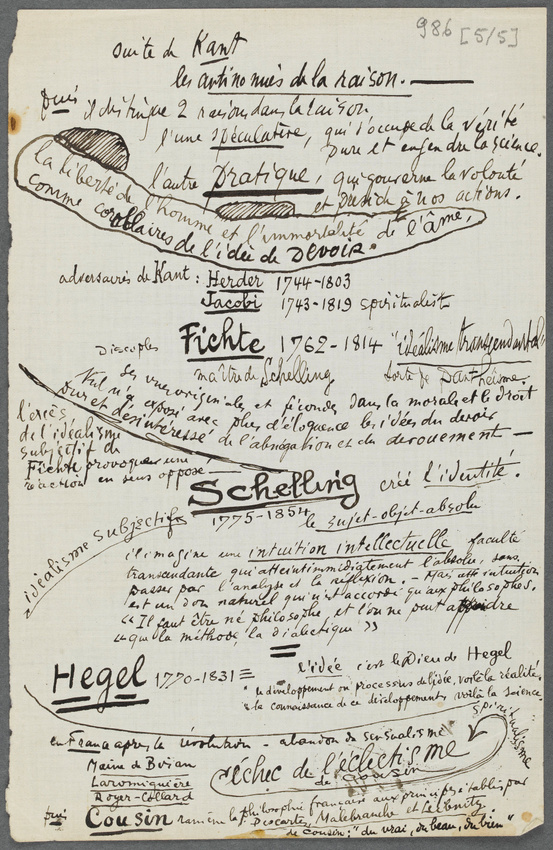 986 [5/5]
suite de Kant
les antinomies de la raison.
puis il distingue 2 raisons dans la raison
l'une spéculative, qui s'occupe de la vérité
pure et engendre la science.
l'autre pratique, qui gouverne la volonté
et préside à nos actions.
la liberté de l'homme et l'immortalité de l'âme,
comme corollaires de l'idée de DEVOIR.
adversaires de Kant : Herder 1744-1803
Jacobi 1743-1819 spiritualiste
Disciples Fichte 1762-1814 "idéalisme transcendantal"
maître de Schelling sorte de Panthéisme.
Ses vues originales et fécondes dans la morale et le droit
Nul n'a exposé avec plus d'éloquence les idées du devoir
pur et désintéressé de l'abnégation et du dévouement —
l'excès
de l'idéalisme
subjectif de
Fichte provoque une
réaction en sens opposé —
Schelling créé l'identité.
1775-1854 le sujet-objet-absolu
idéalisme subjectif
il imagine une intuition intellectuelle faculté
transcendante qui atteint immédiatement l'absolu, sans
passer par l'analyse et la réflexion. - Mais cette intuition
est un don naturel qui n'est accordé qu'aux philosophes.
"Il faut être né philosophe, et l'on ne peut apprendre
"que la méthode, la dialectique"
Hegel 1770-1831 l'idée c'est le Dieu de Hegel
"le développement ou processus de l'idée, voilà la réalité,
& la connaissance de ce développement voilà la science.
spiritualisme
en France après la révolution - abandon du sensualisme
Maine de Biran
Laromiguière
Royer-Collard
échec de l'éclectisme
de Cousin
puis Cousin ramène la philosophie française aux principes établis par
Descartes, Malebranche et Leibnitz.
de Cousin: "du vrai, du beau, du bien"